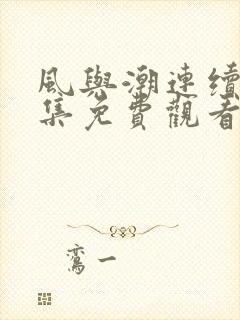 風與潮連續
集免費觀看
鸞一